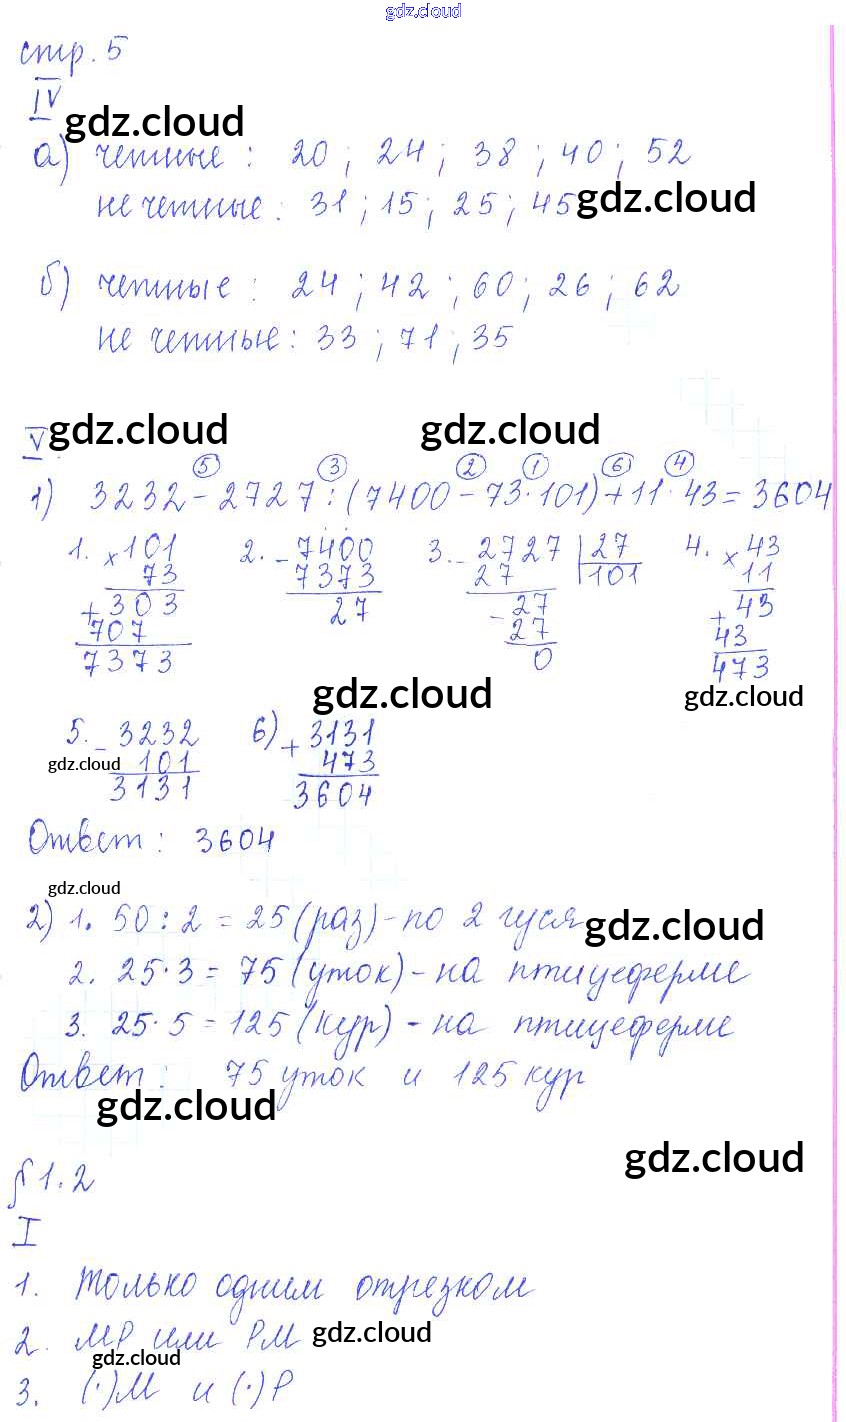 gdz.cloud
стр. 5
IV
gdz.cloud
а) четные : 20 ; 24 ; 38 ; 40 ; 52
не четные : 31 ; 15 ; 25 ; 45
gdz.cloud
б) четные : 24 ; 42 ; 60 ; 26 ; 62
не четные : 33 ; 71 ; 35
V. gdz.cloud gdz.cloud
5 3 2 1 6 4
1) 3232 - 2727 : (7400 - 73 · 101) + 11 · 43 = 3604
1. × 101 2. - 7400 3. - 2727 | 27 4. × 43
73 7373 27 101 11
+ 303 27 - 27 + 43
707 27 43
7373 0 473
gdz.cloud gdz.cloud
5. - 3232 6) + 3131
gdz.cloud 101 473
3131 3604
Ответ : 3604
gdz.cloud
2) 1. 50 : 2 = 25 (раз) - по 2 гуся
gdz.cloud
2. 25 · 3 = 75 (уток) - на птицеферме
3. 25 · 5 = 125 (кур) - на птицеферме
Ответ : 75 уток и 125 кур
gdz.cloud
gdz.cloud
§ 1.2
I
1. только одним отрезком
2. МР или РМ gdz.cloud
gdz.cloud
3. (·)М и (·)Р